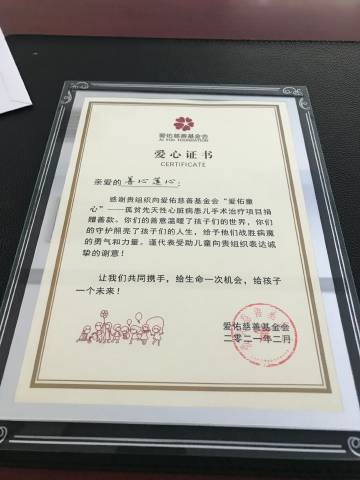 爱佑慈善基金会
AI YOU FOUNDATION
爱心证书
CERTIFICATE
亲爱的 善心莲心:
感谢贵组织向爱佑慈善基金会“爱佑童
心”——孤贫先天性心脏病患儿手术治疗项目捐
赠善款。你们的善意温暖了孩子们的世界，你们
的守护照亮了孩子们的人生，给予他们战胜病魔
的勇气和力量。谨代表受助儿童向贵组织表达诚
挚的谢意！
让我们共同携手，给生命一次机会，给孩子
一个未来！
爱佑慈善基金会
二零二一年二月